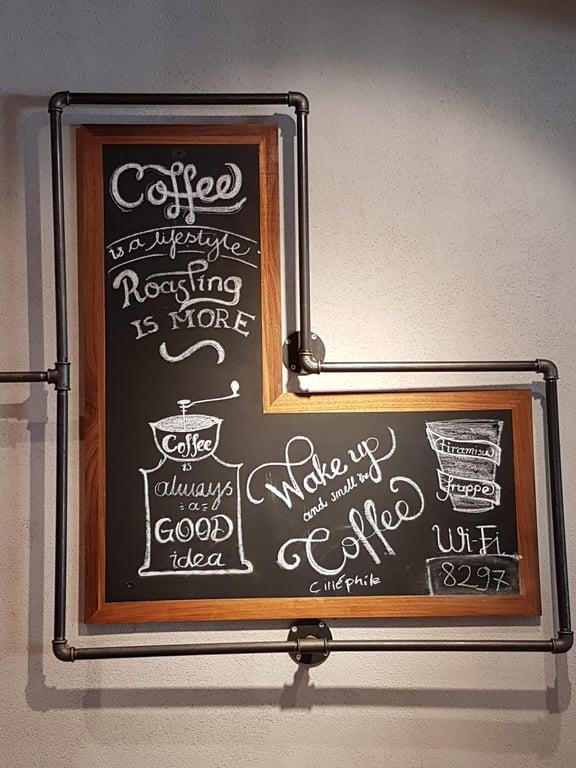 Coffee
is a lifestyle
Roasting
IS MORE
Coffee
is
always
a
GOOD
idea
Wake up
and smell the
Coffee
tiramisu
frappe
Wi-Fi
8297